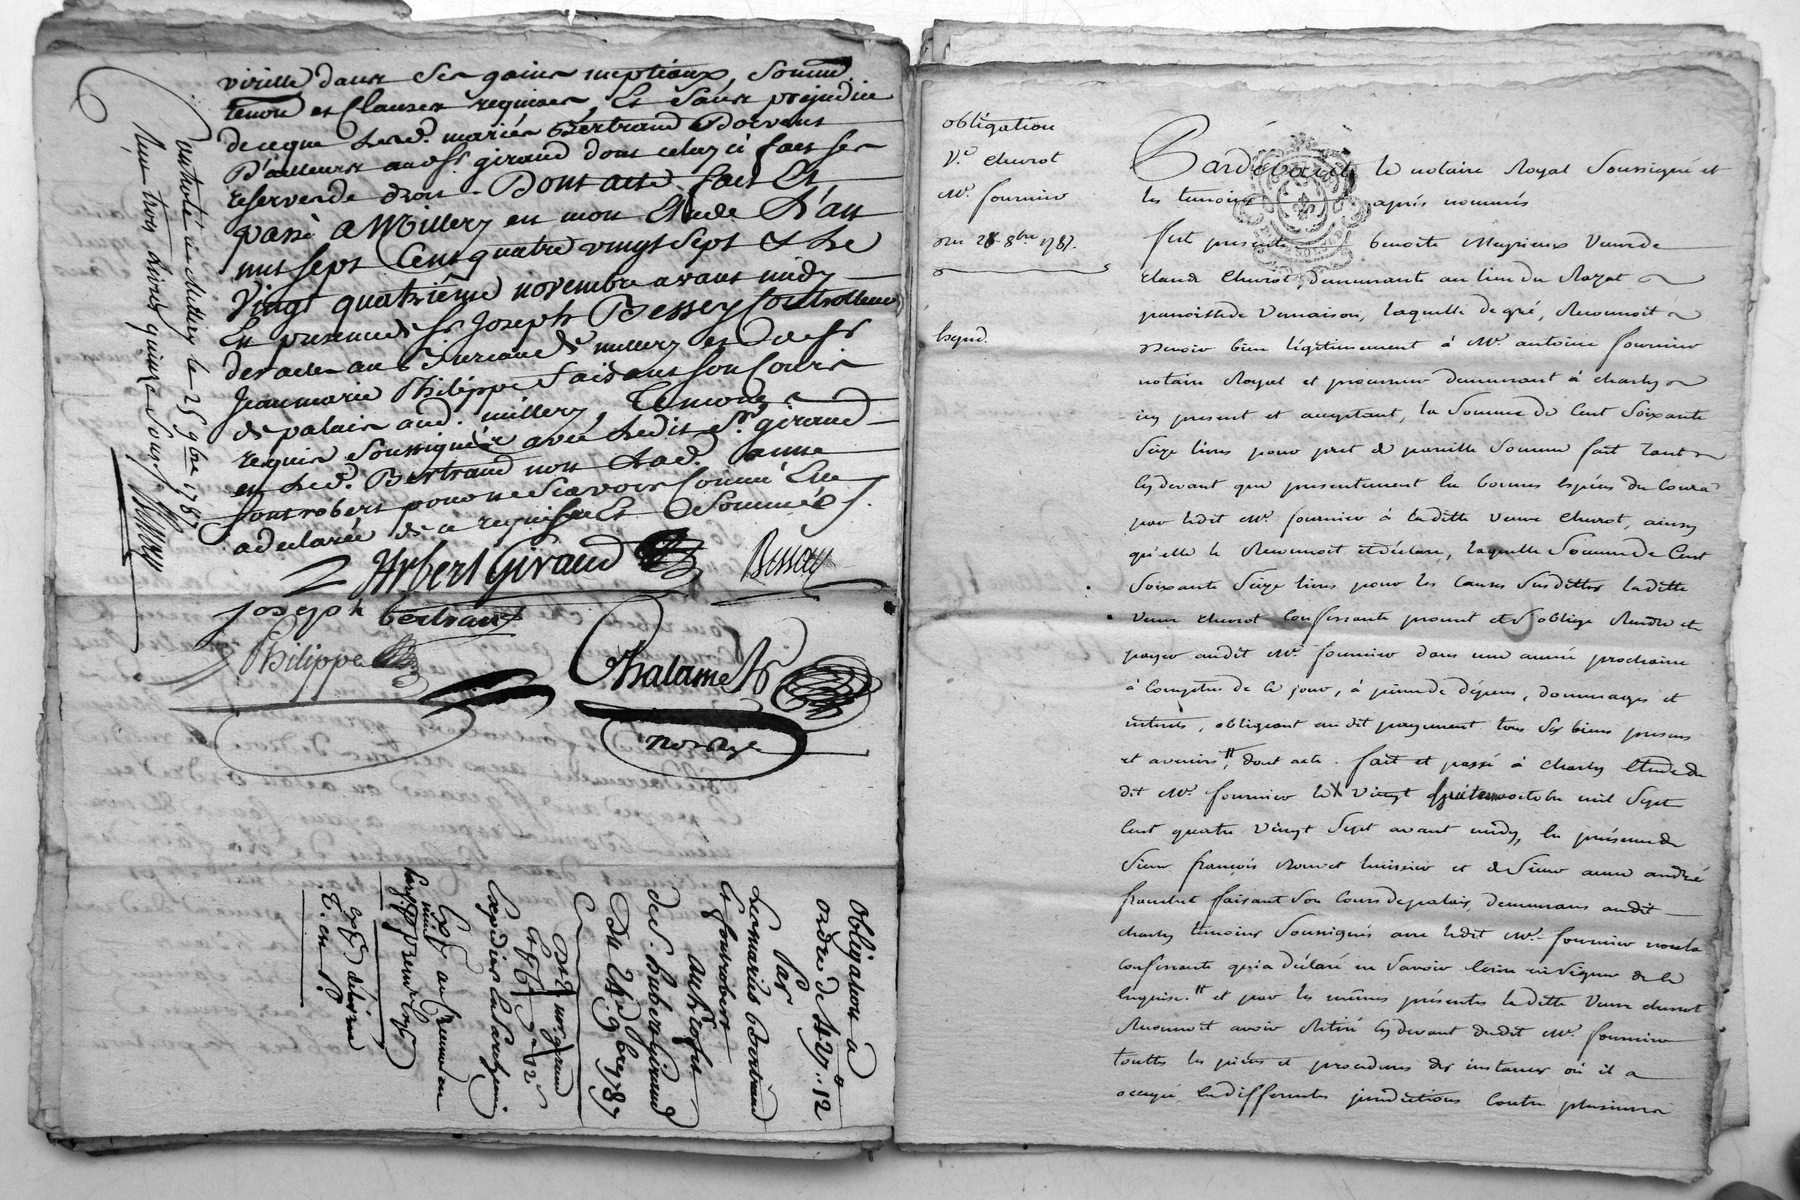 virille dans ses gains nuptiaux, Somme
teneur et Clauses requises, Et Sans prejudice
de ceque Lesd. mariés Bertrand Doivent
D'ailleurs aud Sr. giraud dont celuy ci fait ses
reserves de droit. Dont acte. fait Et
passé a Millery en mon Etude L'an
mil sept Cent quatre vingt sept & Le
Vingt quatrième novembre avant midy
En presence de Sr. Joseph Bessey Controlleur
des actes au Bureau de millery et de Sr.
Jean marie Philippe faisant Son Cours
de palais aud. millery, Temoins
requis Soussignés avec Ledit Sr. giraud
et Led. Bertrand non Lad. anne
fontrobert pour ne Sçavoir Comme Elle
a declarée de ce requise Et Sommée
Hubert Giraud
Bessey
joseph bertrand
Philippe
Chalamel
No. Roy.
Controlé à Millery le 25 9bre 1787
Reçu trois Livres quinze Sous Bessey
Obligation a
ordre de 427.. 12
Par
Les mariés Bertrand
Et fontrobert
Au profit
de S. hubert Giraud
Du 24 9bre 1787
obligation
Ve. chuzot
Me. fournier
du 28 8bre 1787.
Expéd.
Pardevant le notaire Royal Soussigné et
les temoins après nommés
fut presente benoite Meyrieux veuve de
claud chuzot, demeurante au lieu du Razat
paroisse de Vernaison, laquelle de gré, Reconnoit
Devoir bien légitimement à Me. antoine fournier
notaire Royal et procureur demeurant à charly
icy present et acceptant, la Somme de Cent Soixante
Seize livres pour pret de pareille Somme fait tant
cydevant que presentement En bonnes Espèces du Cours
par ledit Me. fournier à laditte veuve chuzot, ainsy
qu'elle le Reconnoit et déclare, laquelle Somme de Cent
Soixante Seize livres pour les causes Susdittes laditte
veuve chuzot Confessante promet et S'oblige Rendre et
payer audit Me. fournier dans une année prochaine
à Compter de Ce jour, à peine de dépens, dommages et
interets, obligeant audit payement tous Ses biens presens
et avenirs, dont acte. fait et passé à charly Etude du
dit Me. fournier le vingt huit octobre mil Sept
Cent quatre vingt Sept avant midy, En présence de
Sieur françois huissier et de Sieur andré
faisant Son Cours de palais, demeurans audit
charly temoins Soussignés avec ledit Me. fournier non la
Confessante qui a déclaré ne Savoir Ecrire ni Signer de ce
Enquise. et par les mêmes présentes laditte veuve chuzot
Reconnoit avoir Retiré cydevant dudit Me. fournier
touttes les pièces et procedures des instances où il a
occupé En differentes jurisdictions Contre plusieurs